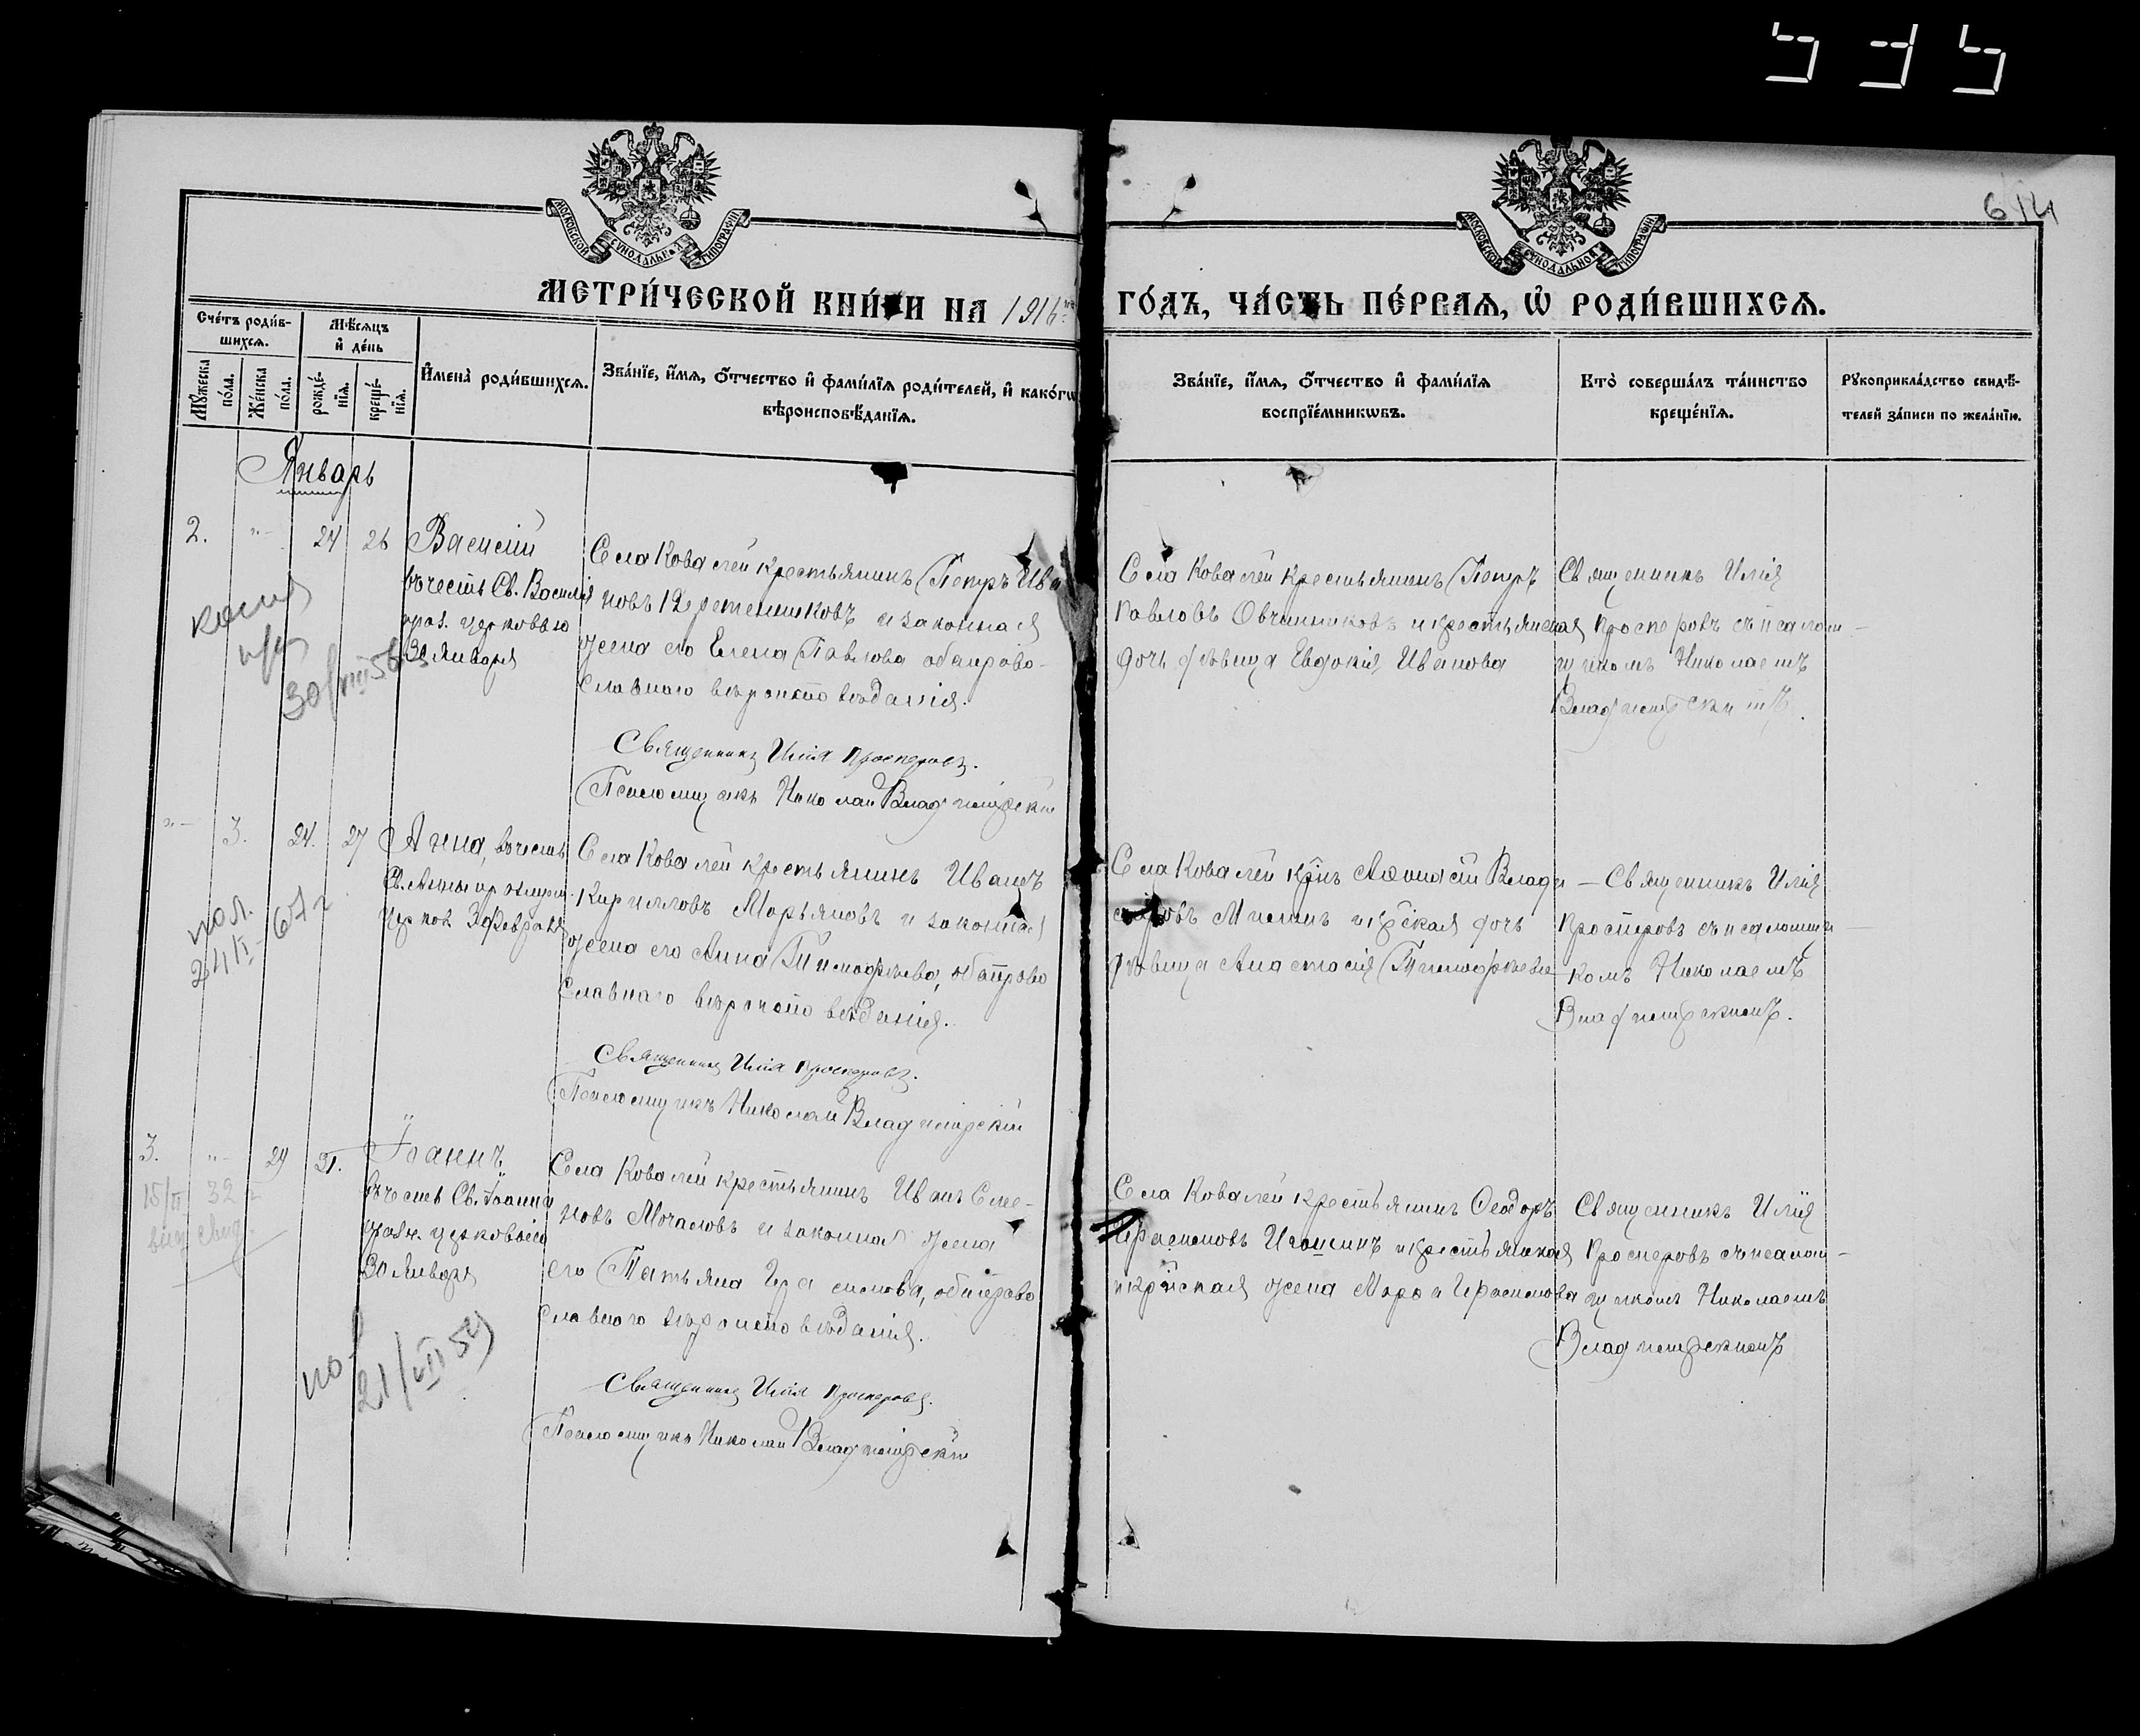 614
МОСКОВСКОЙ СѴНОДАЛЬНОЙ ТИПОГРАФІИ
МОСКОВСКОЙ СѴНОДАЛЬНОЙ ТИПОГРАФІИ
МЕТРИ́ЧЕСКОЙ КНИ́ГИ НА 1916 ГО́ДЪ, ЧА́СТЬ ПЕ́РВАѦ, Ѡ҆ РОДИ́ВШИХСѦ.
Сче́тъ роди́в-
шихсѧ.
Мꙋ́жеска по́ла.
Же́нска по́ла.
Мѣ́сѧцъ и҆ де́нь
рожде́-
нїѧ.
креще́-
нїѧ.
И҆мена̀ роди́вшихсѧ.
Зва́нїе, и҆́мѧ, ѻ҆́тчество и҆ фамі́лїѧ роди́телей, и҆ како́гѡ
вѣроисповѣ́данїѧ.
Зва́нїе, и҆́мѧ, ѻ҆́тчество и҆ фамі́лїѧ
воспрїе́мникѡвъ.
Кто̀ соверша́лъ та́инство
креще́нїѧ.
Рꙋкоприкла́дство свидѣ́-
телей за́писи по жела́нїю.
Январь
2. "- 24 26 Василій
въ честь Св. Василія
праз. церковью
30 Января
Села Ковалей крестьянинъ Петръ Ива
новъ и законная
жена его Елена Павлова оба право-
славнаго вѣроисповѣданія.
Священникъ Илія Просперовъ.
Псаломщикъ Николай Владимірскій
Села Ковалей крестьянинъ Петръ
Павловъ Овчинниковъ и крестьянская
дочь дѣвица Евдокія Иванова
Священникъ Илія
Просперовъ съ псалом-
щикомъ Николаемъ
Владимірскимъ.
копия
30/VIII 56
"- 3. 24. 27 Анна, въ честь
Св. Анны
церков. 3 Февраля
Села Ковалей крестьянинъ Иванъ
Кирилловъ Марьяновъ и законная
жена его Анна Тимофѣева, оба право
славнаго вѣроисповѣданія.
Священникъ Илія Просперовъ.
Псаломщикъ Николай Владимірскій
Села Ковалей кр̃нъ Аѳанасій Влади
міровъ Мишинъ и кр̃ская дочь
дѣвица Анастасія Тимофѣева
- Священникъ Илія
Просперовъ съ псаломщи-
комъ Николаемъ
Владимірскимъ.
пол.
24/I-67г
3. "- 29 31. Іоаннъ
въ честь Св. Іоанна
праз. церковью
30 Января
Села Ковалей крестьянинъ Иванъ Симе-
новъ Мочаловъ и законная жена
его Татьяна Герасимова, оба право
славнаго вѣроисповѣданія.
Священникъ Илія Просперовъ.
Псаломщикъ Николай Владимірскій
Села Ковалей крестьянинъ Ѳеодоръ
Герасимовъ Игошинъ и крестьянская
жена Марѳа Герасимова
Священникъ Илія
Просперовъ съ псалом-
щикомъ Николаемъ
Владимірскимъ
15/II 32 г
выд свид.
пол
21/VII 59